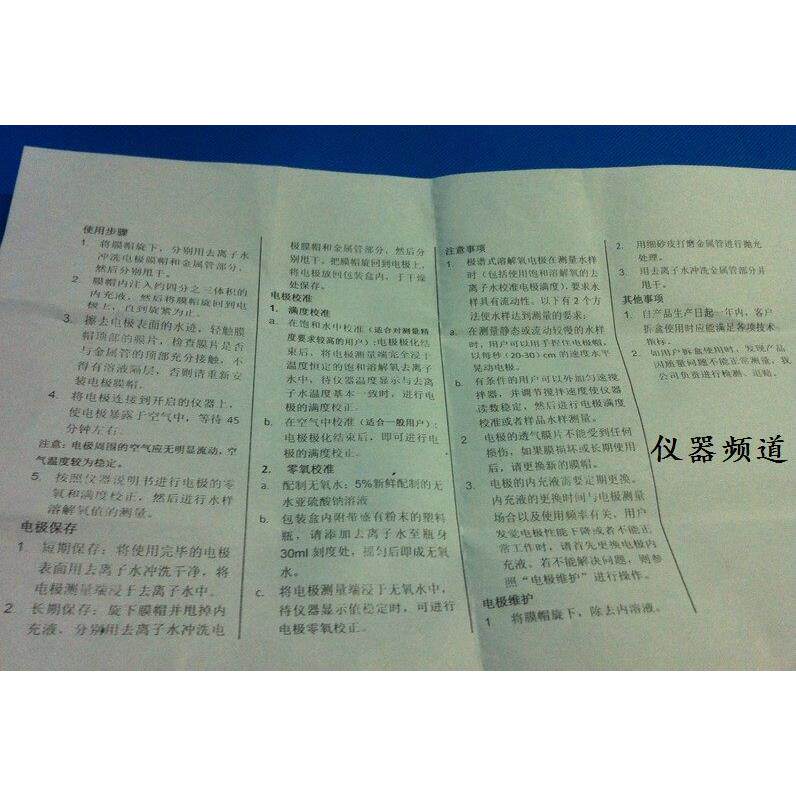 使用步骤
1. 将膜帽旋下，分别用去离子水
冲洗电极膜帽和金属管部分，
然后分别甩干。
2. 膜帽内注入约四分之三体积的
内充液，然后将膜帽旋回到电
极上，直到旋紧为止。
3. 擦去电极表面的水迹，轻触膜
帽顶部的膜片，检查膜片是否
与金属管的顶部充分接触，不
得有溶液隔层，否则请重新安
装电极膜帽。
4. 将电极连接到开启的仪器上，
使电极暴露于空气中，等待 45
分钟左右。
注意：电极周围的空气应无明显流动，空
气温度较为稳定。
5. 按照仪器说明书进行电极的零
氧和满度校正，然后进行水样
溶解氧值的测量。
电极保存
1 短期保存：将使用完毕的电极
表面用去离子水冲洗干净，将
电极测量端浸于去离子水中。
2 长期保存：旋下膜帽并甩掉内
充液，分别用去离子水冲洗电
极膜帽和金属管部分，然后分
别甩干，把膜帽旋回到电极上，
将电极放回包装盒内，于干燥
处保存。
电极校准
1. 满度校准
a. 在饱和水中校准（适合对测量精
度要求较高的用户）：电极极化结
束后，将电极测量端完全浸于
温度恒定的饱和溶解氧去离子
水中，待仪器温度显示与去离
子水温度基本一致时，进行电
极的满度校正。
b. 在空气中校准（适合一般用户）：
电极极化结束后，即可进行电
极的满度校正。
2. 零氧校准
a. 配制无氧水：5%新鲜配制的无
水亚硫酸钠溶液
b. 包装盒内附带盛有粉末的塑料
瓶，请添加去离子水至瓶身
30ml 刻度处，摇匀后即成无氧
水。
c. 将电极测量端浸于无氧水中，
待仪器显示值稳定时，可进行
电极零氧校正。
注意事项
1. 极谱式溶解氧电极在测量水样
时（包括使用饱和溶解氧的去
离子水校准电极满度），要求水
样具有流动性。以下有 2 个方
法使水样达到测量的要求：
a. 在测量静态或流动较慢的水样
时，用户可以用手握住电极帽，
以每秒（20-30）cm 的速度水平
晃动电极。
b. 有条件的用户可以外加匀速搅
拌器，并调节搅拌速度使仪器
读数稳定，然后进行电极满度
校准或者样品水样测量。
2 电极的透气膜片不能受到任何
损伤，如果膜损坏或长期使用
后，请更换新的膜帽。
3. 电极的内充液需要定期更换。
内充液的更换时间与电极测量
场合以及使用频率有关，用户
发觉电极性能下降或者不能正
常工作时，请首先更换电极内
充液。若不能解决问题，则参
照“电极维护”进行操作。
电极维护
1 将膜帽旋下，除去内溶液。
2. 用细砂皮打磨金属管进行抛光
处理。
3. 用去离子水冲洗金属管部分并
甩干。
其他事项
1. 自产品生产日起一年内，客户
拆盒使用时应能满足各项技术
指标。
2. 如用户拆盒使用时，发现产品
因质量问题不能正常测量，我
公司负责进行检测、退赔。
仪器频道